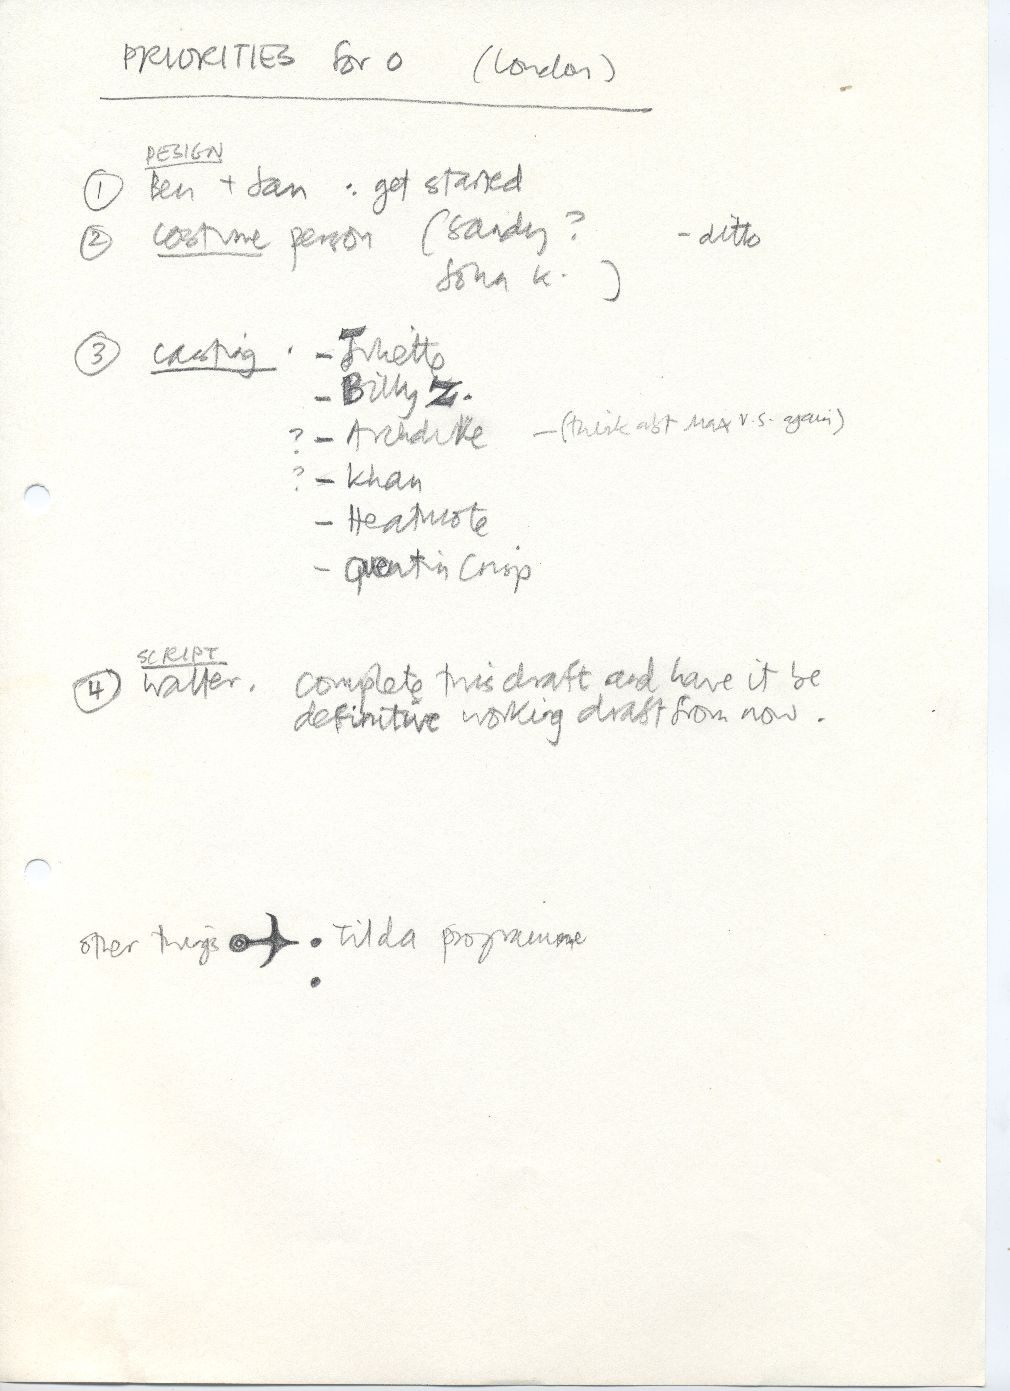 PRIORITIES for O (London)
DESIGN
① Ben + Jan : get started
② costume person (Sandy ? - ditto
John K. )
③ casting . - Juliette
- Billy Z.
? - Archduke - (think abt Max V.S. again)
? - Khan
- Heathcote
- Quentin Crisp
SCRIPT
④ Walter. complete this draft and have it be
definitive working draft from now.
other things → • Tilda programme
•